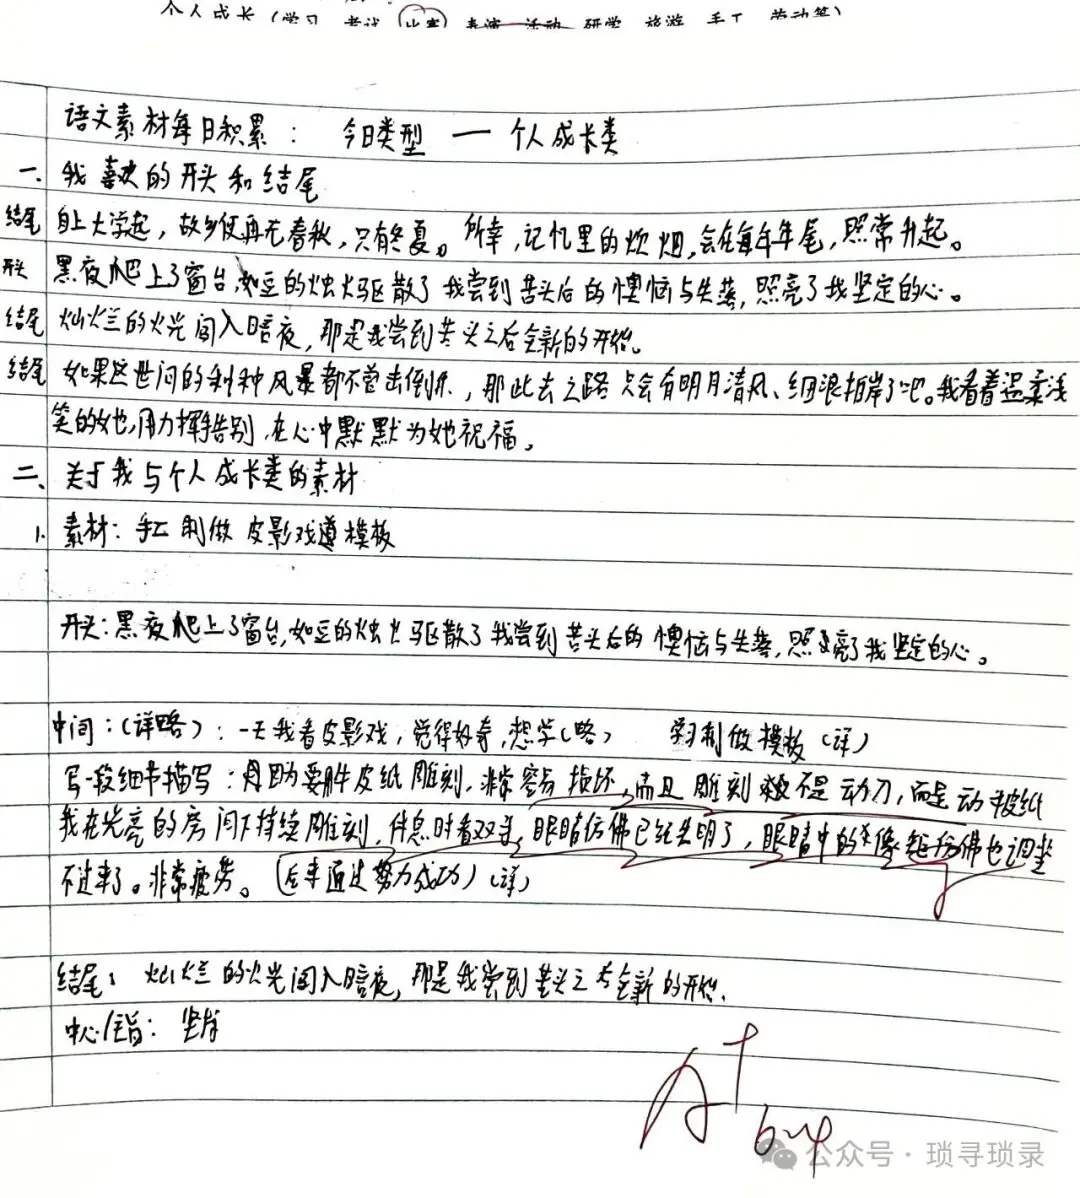 个人成长（学习 考试 比赛 表演 活动 研学 旅游 手工 劳动等）
语文素材每日积累： 今日类型 — 个人成长类
一、我喜欢的开头和结尾
结尾 自上大学起，故乡便再无春秋，只有冬夏。所幸，记忆里的炊烟，会在每年年尾，照常升起。
开头 黑夜爬上了窗台，如豆的烛火驱散了我尝到苦头后的懊恼与失落，照亮了我坚定的心。
结尾 灿烂的火光闯入暗夜，那是我尝到苦头之后全新的开始。
结尾 如果这世间的种种风暴都不曾击倒你，那此去之路只会有明月清风、细浪拍岸了吧。我看着温柔浅
笑的她，用力挥手告别，在心中默默为她祝福。
二、关于我与个人成长类的素材
1. 素材：手工制做皮影戏 模板
开头：黑夜爬上了窗台，如豆的烛火驱散了我尝到苦头后的懊恼与失落，照亮了我坚定的心。
中间：（详略）：一天我看皮影戏，觉得好奇，想学（略） 学习制做模板（详）
写一段细节描写：因为要用牛皮纸雕刻，非常容易损坏，而且雕刻 不是动刀，而是动 纸
我在光亮的房间下持续雕刻，休息时看双手，眼睛仿佛已经失明了，眼睛中的 仿佛也调
不过来了。非常疲劳。（后来通过努力成功）（详）
结尾：灿烂的火光闯入暗夜，那是我尝到苦头之后全新的开始。
中心/主旨：坚持
A+
公众号 · 琐寻琐录